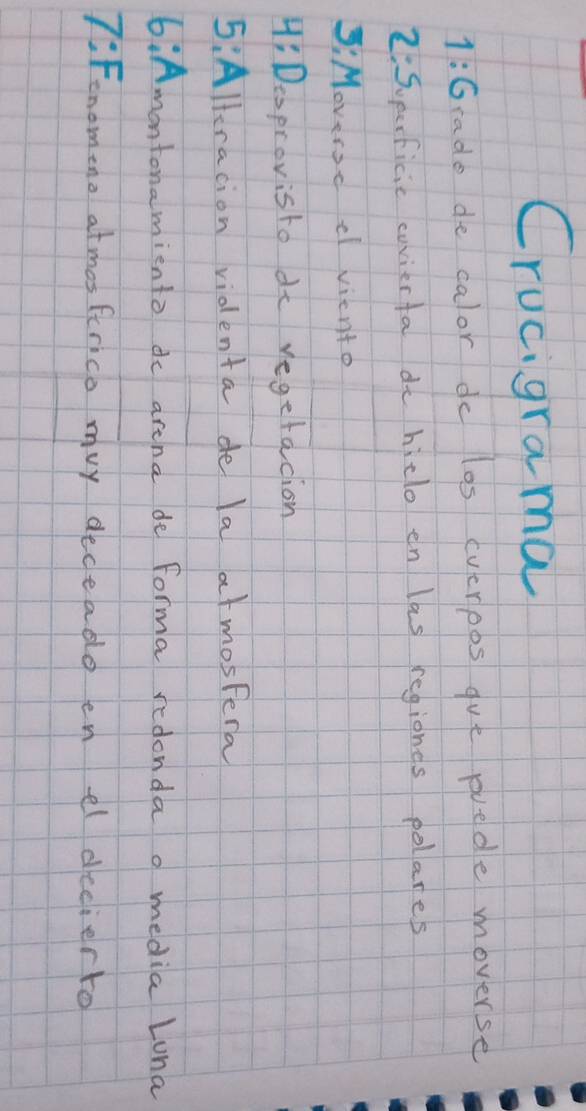 Crucigrama
1: Grado de calor de los cuerpos que puede moverse
2: Superficie cuvierta de hielo en las regiones polares
3: Moverse el viento
4: Desprovisto de vegetacion
5: Alteracion videnta de la atmosfera
6: Amontonamiento de arena de forma redonda o media Luna
7: Fenomeno atmosferico muy deceado en el decierto